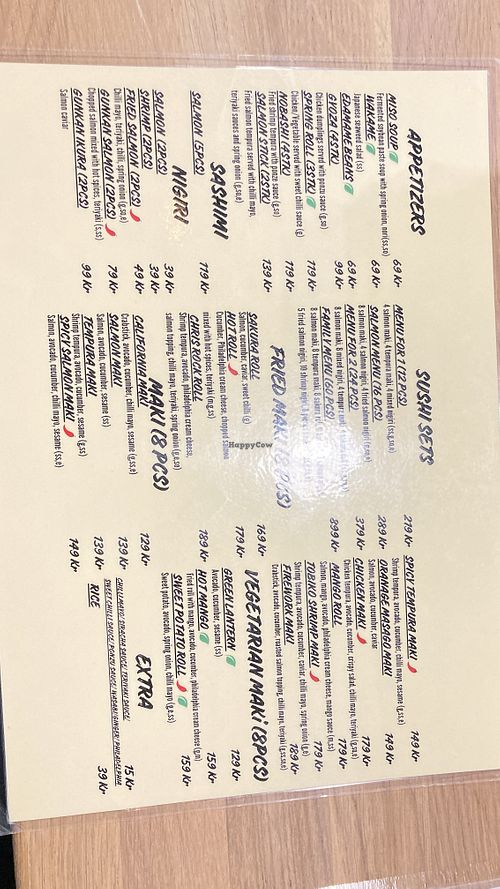 APPETIZERS
MISO SOUP 69 Kr
Fermented soybean paste soup with spring onion, nori(ss,so)
WAKAME 69 Kr
Japanese seaweed salad (ss)
EDAMAME BEANS 69 Kr
GYOZA (4STK) 99 Kr
Chicken dumplings served with ponzu sauce (g,so)
SPRING ROLL (3STK) 119 Kr
Chicken/Vegetable served with sweet chilli sauce (g)
NOBASHI (4STK) 119 Kr
Fried shrimp tempura with ponzu sauce (g,so)
SALMON STICK (2STK) 139 Kr
Fried salmon tempura served with chilli mayo,
teriyaki sauces and spring onion (g,so,e)
SASHIMI
SALMON (5PCS) 119 Kr
NGIRI
SALMON (2PCS) 39 Kr
SHRIMP (2PCS) 39 Kr
FRIED SALMON (2PCS) 49 Kr
Chilli mayo, teriyaki, chilli, spring onion (g,so,e)
GUNKAN SALMON (2PCS) 79 Kr
Chopped salmon mixed with hot spices, teriyaki (s,ss)
GUNKAN IKURA (2PCS) 99 Kr
Salmon caviar
SUSHI SETS
MENU FOR 1 (12 PCS) 219 Kr
4 salmon maki, 4 tempura maki, 4 mixed nigiri (ss,g,so,e)
SALMON MENU (16 PCS) 289 Kr
8 salmon maki, 4 salmon nigiri, 4 fried salmon nigiri (g,so,e)
MENU FOR 2 (24 PCS) 379 Kr
8 salmon maki, 8 mixed nigiri, 4 tempura maki
FAMILY MENU (60 PCS) 899 Kr
8 salmon maki, 8 tempura maki, 8
5 fried salmon nigiri, 10 shrimp nigiri,
FRIED MAKI (8 PCS)
SAKURA ROLL 169 Kr
Salmon, cucumber, caviar, sweet chilli (g)
HOT ROLL 179 Kr
Cucumber, Philadelphia cream cheese, chopped salmon
mixed with hot spices, teriyaki (m,g,ss)
CHRIS ROCK ROLL 189 Kr
Shrimp tempura, avocado, philadelphia cream cheese,
salmon topping, chilli mayo, teriyaki, spring onion (g,e,so)
MAKI (8 PCS)
CALIFORNIA MAKI 129 Kr
Crabstick, avocado, cucumber, chilli mayo, sesame (g,ss,e)
SALMON MAKI 139 Kr
Salmon, avocado, cucumber, sesame (ss)
TEMPURA MAKI 139 Kr
Shrimp tempura, avocado, cucumber, sesame (g,ss)
SPICY SALMON MAKI 149 Kr
Salmon, avocado, cucumber, chilli mayo, sesame (ss,e)
SPICY TEMPURA MAKI 149 Kr
Shrimp tempura, avocado, cucumber, chilli mayo, sesame (g,ss,e)
ORANAGE MASAGO MAKI 149 Kr
Salmon, avocado, cucumber, caviar
CHICKEN MAKI 179 Kr
Chicken tempura, avocado, cucumber, crispy salat, chilli mayo, teriyaki (g,so)
MANGO ROLL 179 Kr
Salmon, mango, avocado, philadelphia cream cheese, mango sauce (m,ss)
TOBIKO SHRIMP MAKI 179 Kr
Shrimp tempura, avocado, cucumber, caviar, chilli mayo, spring onion (g,e)
FIREWORK MAKI 189 Kr
Crabstick, avocado, cucumber, roasted salmon topping, chilli mayo, teriyaki (g,ss,so,e)
VEGETARIAN MAKI (8PCS)
GREEN LANTERN 129 Kr
Avocado, cucumber, sesame (ss)
HOT MANGO 159 Kr
Fried roll with mango, avocado, cucumber, philadelphia cream cheese (g,m)
SWEET POTATO ROLL 159 Kr
Sweet potato, avocado, spring onion, chilli mayo (g,e,ss)
EXTRA
CHILLI MAYO/ SRIRACHA SAUCE/ TERIYAKI SAUCE/ 15 Kr
SWEET CHILLI SAUCE/ PONZU SAUCE/ WASABI/GINGER/ PHILADELPHIA
RICE 39 Kr
HappyCow